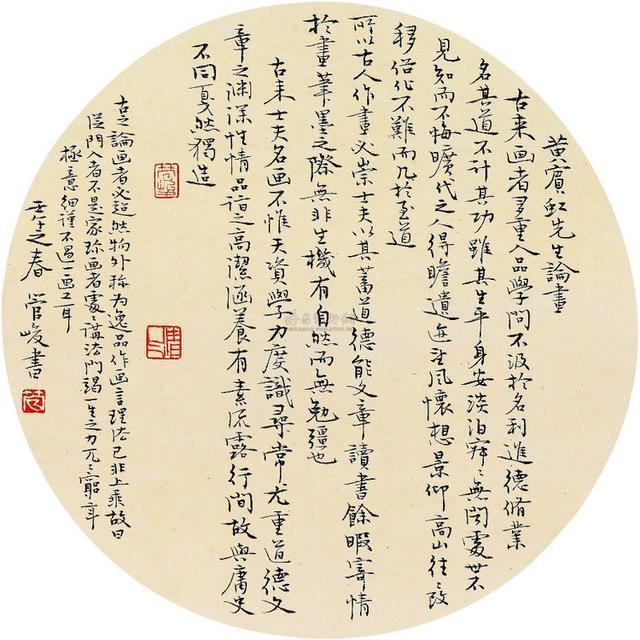 黄賓虹先生論畫
古来画者多重人品學問不汲於名利進德脩業
名其道不計其功雖其生平身安淡泊寂〻無聞處世不
見知而不悔曠代之人得瞻遺迹望風懷想景仰高山往〻改
移俗化不難而几於至道
所以古人作畫必崇士夫以其蓄道德能文章讀書餘暇寄情
於畫筆墨之際無非生機有自然而無勉彊也
古来士夫名画不惟天資學力度識尋常尤重道德文
章之渊深性情品詣之高潔涵養有素流露行間故與庸史
不同戛然獨造
古之論画者必超然物外称为逸品作画言理法已非上乘故曰
從門入者不是家珍画者處〻講法門竭一生之力兀〻窮年
極意細謹不過一画工耳
壬午之春 管峻書